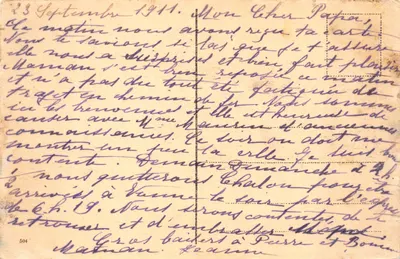 23 Septembre 1911. Mon Cher Papa,
Ce matin nous avons reçu ta carte
Nous te savons si las que je t'assure
elle nous a surprises et bien fait plaisir
Maman s'est bien reposée ce matin
et n'a pas du tout été fatiguée du
trajet en chemin de fer. Nous sommes
ici les heureuse de
causer avec Mme d'anciennes
connaissances. Ce soir on doit me
montrer un peu la ville. Je suis
contente. Demain Dimanche à 2 h.
nous quitterons Chalon pour être
arrivées à le soir par l'express
de 6 h. 19. Nous serons contentes de te
retrouver et d'embrasser
Gros baisers à Pierre et
Maman. Jeanne